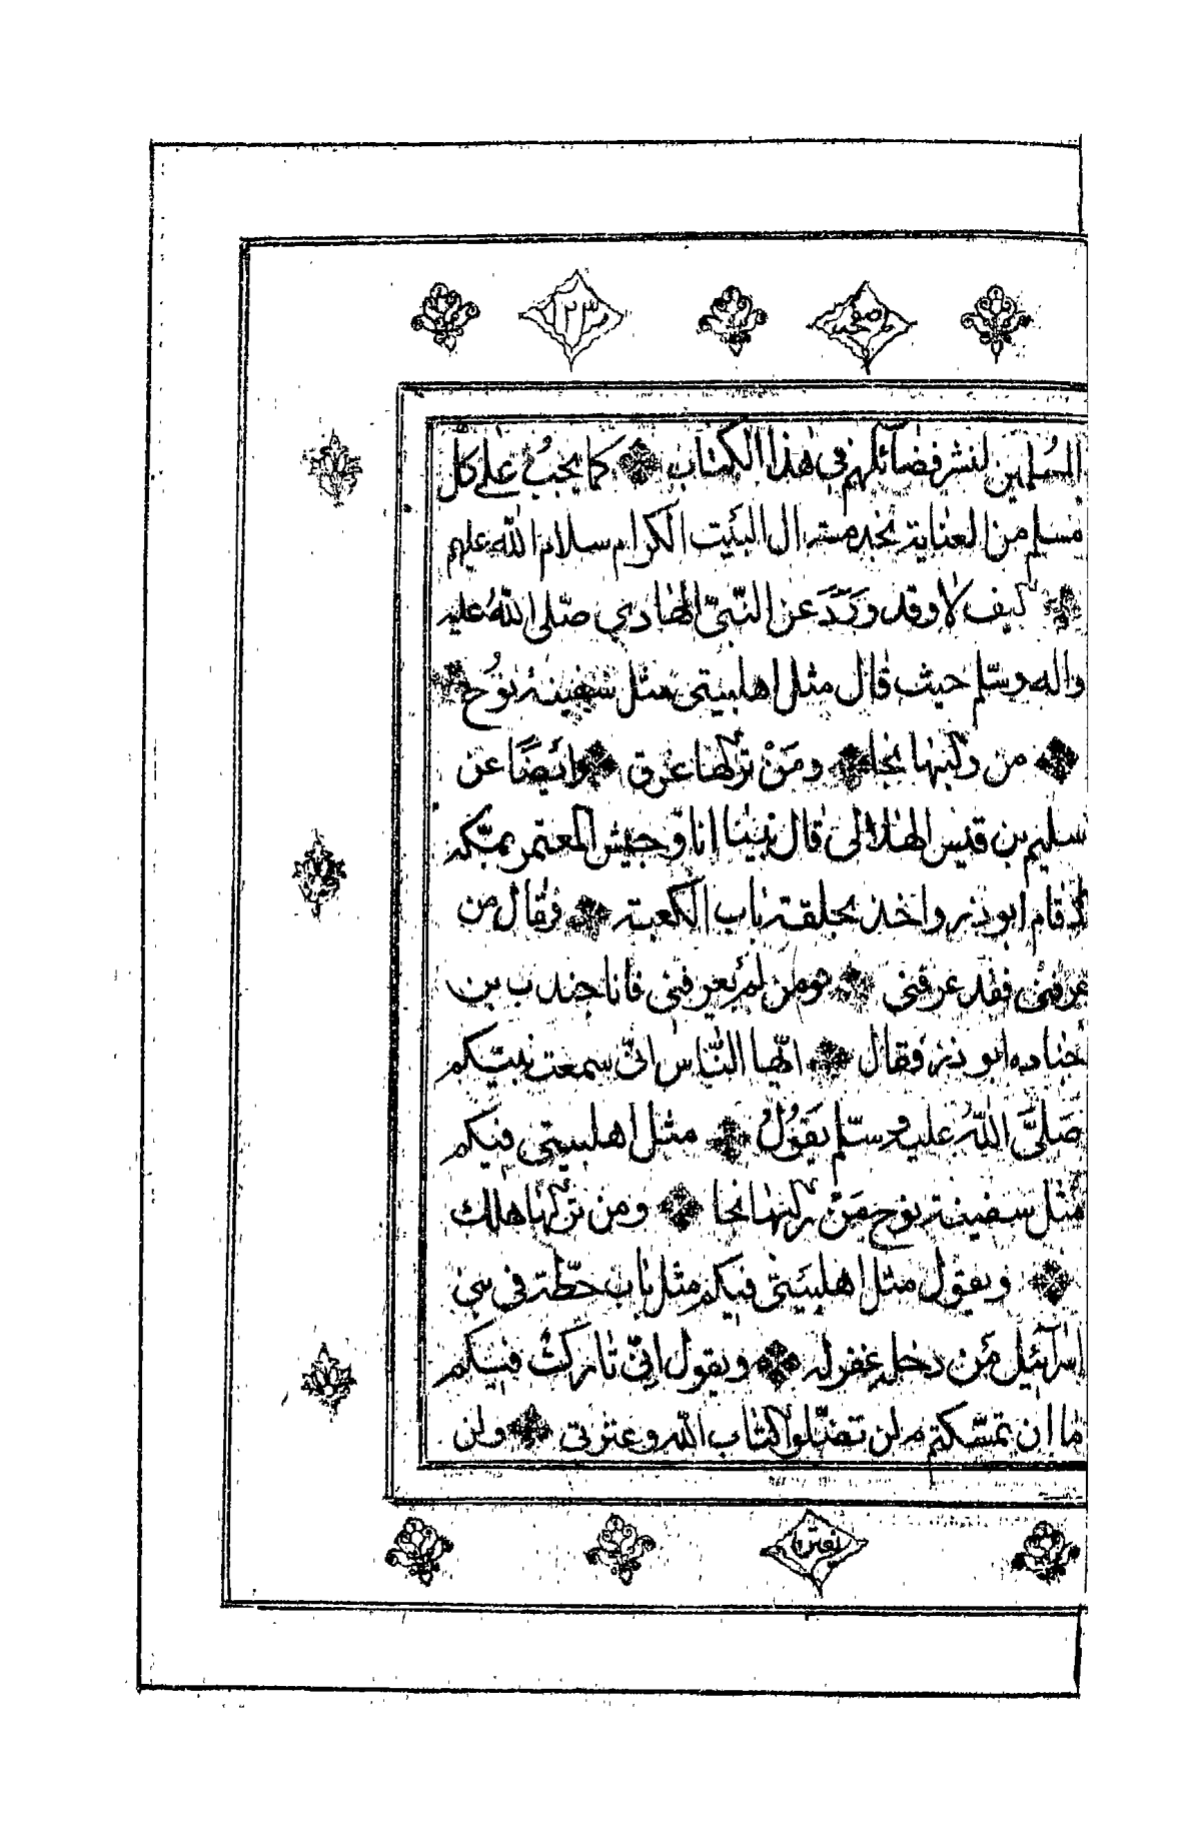 صفحه ١٢٣
المسلمين لنشر فضآئلهم في هذا الكتاب ❖ كما يجبُ على كلّ
مسلم من العناية بخدمته ال البَيت الكرام سلام اللّه عليهم
❖ كيف لا وقد وَرَدَ عن النّبيّ الهادي صلّى اللّهُ عليه
واله وسلّم حيث قال مثل اهلبيتي مثل سفينة نوُح
❖ من ركبها نجا ❖ ومَنْ تركها غرق ❖ وايَضًا عن
سليم بن قيس الهلالى قال بينا انا وجيش المعتمر بمكّه
اذ قام ابوذر واخذ بحلقة باب الكعبة ❖ فقال من
عرفنى فقد عرفنى ❖ ومن لم يعرفنى فانا جندب بن
جناده ابو ذر فقال ❖ ايّها النّاس انّى سمعت نبيّكم
صَلىَّ اللّهُ عليه وسلّم يَقوُلُ ❖ مثل اهلبيتى فيكم
مثل سفينة نوح مَنْ ركبها نجا ❖ ومن تركها هلك
❖ ويقول مثل اهلبيَتى فيكم مثل باب حطّة فى بنى
اسرآئيل مَن دخله غفر له ❖ ويقول انّى تارك فيكم
ما ان تمسّكتم به لن تضلّوا كتاب اللّه وعترتى ❖ ولن
يفترقا